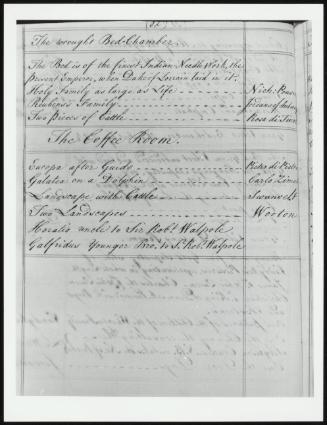 The wrought Bed-Chamber
The Bed is of the finest Indian Needle Work, the
present Emperor, when Duke of Lorrain laid in it.
Holy Family as large as Life Nich: Pous
Reubens's Family
Two pieces of Cattle Rosa di Tivo
The Coffee Room.
Europa after Guido Pietro di Pietr
Galatea on a Dolphin Carlo
Landscape with Cattle Swanevelt
Two Landscapes Wooton
Horatio uncle to Sir Robt Walpole
Galfridus Younger Bro. to Sr. Robt. Walpole